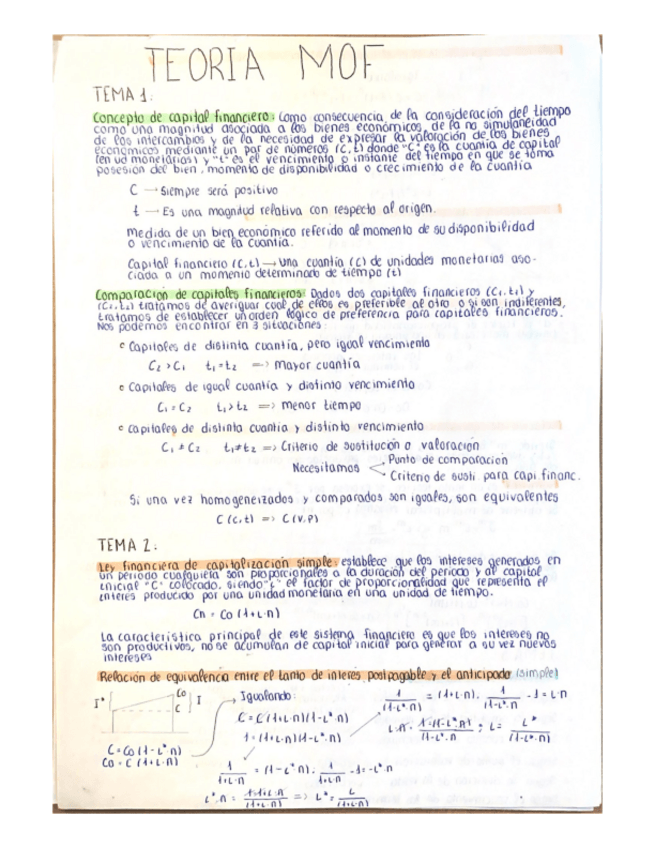 TEORIA MOF
TEMA 1:
Concepto de capital financiero: Como consecuencia de la consideración del tiempo
como una magnitud asociada a los bienes económicos, de la no simultaneidad
de los intercambios y de la necesidad de expresar la valoración de los bienes
económicos mediante un par de números (C,t) donde "C" es la cuantía de capital
(en ud monetarias) y "t" es el vencimiento o instante del tiempo en que se toma
posesión del bien, momento de disponibilidad o crecimiento de la cuantía
C → Siempre será positivo
t → Es una magnitud relativa con respecto al origen.
Medida de un bien económico referido al momento de su disponibilidad
o vencimiento de la cuantía.
Capital financiero (C,t) → Una cuantía (C) de unidades monetarias aso-
ciada a un momento determinado de tiempo (t)
Comparación de capitales financieros: Dados dos capitales financieros (C₁,t₁) y
(C₂,t₂) tratamos de averiguar cual de ellos es preferible al otro o si son indiferentes,
tratamos de establecer un orden lógico de preferencia para capitales financieros.
Nos podemos encontrar en 3 situaciones:
° Capitales de distinta cuantía, pero igual vencimiento
C₂ > C₁ t₁ = t₂ => mayor cuantía
° Capitales de igual cuantía y distinto vencimiento
C₁ = C₂ t₁ > t₂ => menor tiempo
° Capitales de distinta cuantía y distinto vencimiento
C₁ ≠ C₂ t₁ ≠ t₂ => Criterio de sustitución o valoración
Necesitamos < Punto de comparación
Criterio de susti. para capi financ.
Si una vez homogeneizados y comparados son iguales, son equivalentes
C (C,t) => C (V,P)
TEMA 2:
Ley financiera de capitalización simple: establece que los intereses generados en
un periodo cualquiera son proporcionales a la duración del periodo y al capital
inicial "C" colocado, siendo "i" el factor de proporcionalidad que representa el
interes producido por una unidad monetaria en una unidad de tiempo.
Cn = Co (1+i·n)
La característica principal de este sistema financiero es que los intereses no
son productivos, no se acumulan de capital inicial para generar a su vez nuevos
intereses
Relación de equivalencia entre el tanto de interes postpagable y el anticipado (simple)
I* Co C I
Igualando:
C = C (1+i·n)(1-i*·n)
1 = (1+i·n)(1-i*·n)
1/(1-i*·n) = (1+i·n); 1/(1-i*·n) - 1 = i·n
i·n = (1-1+i*·n)/(1-i*·n); i = i*/(1-i*·n)
C = Co (1-i*·n)
Co = C (1+i·n)
1/(1+i·n) = (1-i*·n); 1/(1+i·n) - 1 = -i*·n
i*·n = /(1+i·n) => i* = i/(1+i·n)